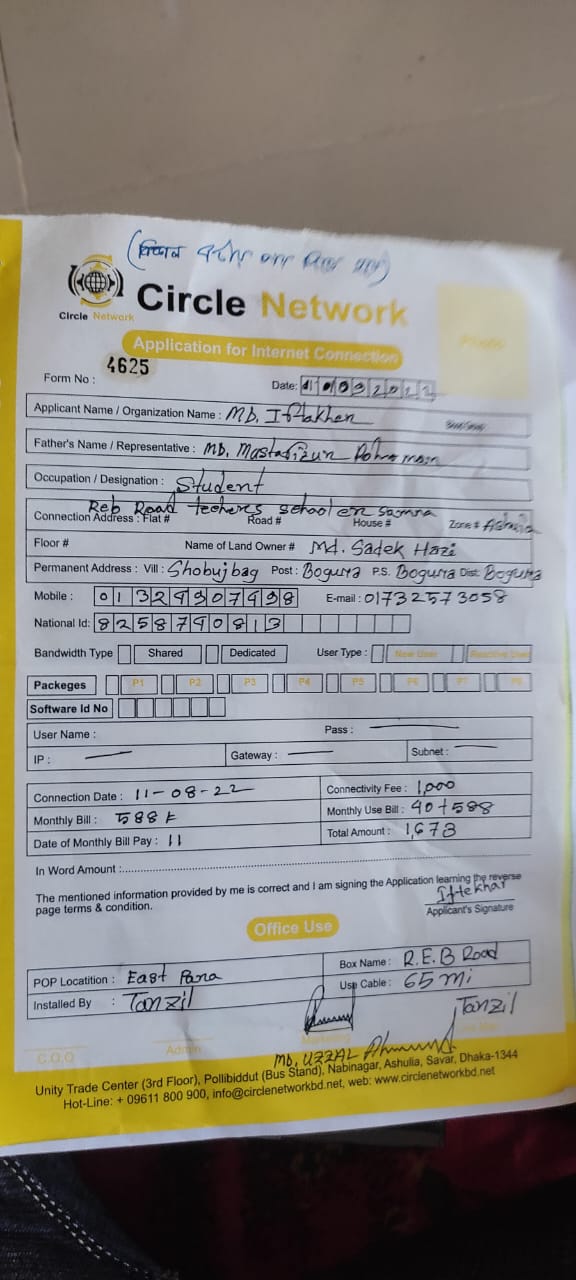 Circle Network
Circle Network
Application for Internet Connection
Form No : 4625
Date:
Applicant Name / Organization Name : MD. Iftakher
Father's Name / Representative : MD. Mustafizun Rohoman
Occupation / Designation : Student
Reb Road techers school er samna
Connection Address : Flat # Road # House # Zone # Ashulia
Floor # Name of Land Owner # Md. Sadek Hazi
Permanent Address : Vill : Shobujbag Post : Bogura P.S. Bogura Dist: Bogura
Mobile : E-mail : 01732573058
National Id: 8258790813
Bandwidth Type Shared Dedicated User Type : New User
Packeges P1 P2 P3 P4 P5 P6 P7 P8
Software Id No
User Name : Pass :
IP : Gateway : Subnet :
Connection Date : 11-08-22 Connectivity Fee : 1,000
Monthly Bill : 588 Monthly Use Bill : 90+588
Date of Monthly Bill Pay : 11 Total Amount : 1,678
In Word Amount :
The mentioned information provided by me is correct and I am signing the Application learning the reverse
page terms & condition.
Iftekhar
Applicant's Signature
Office Use
POP Locatition : East Para Box Name : R.E.B Road
Installed By : Tanzil Use Cable : 65 mi
Tanzil
C.O.O Admin Marketing
MD. UZZAL Ahmmed
Unity Trade Center (3rd Floor), Pollibiddut (Bus Stand), Nabinagar, Ashulia, Savar, Dhaka-1344
Hot-Line: + 09611 800 900, info@circlenetworkbd.net, web: www.circlenetworkbd.net